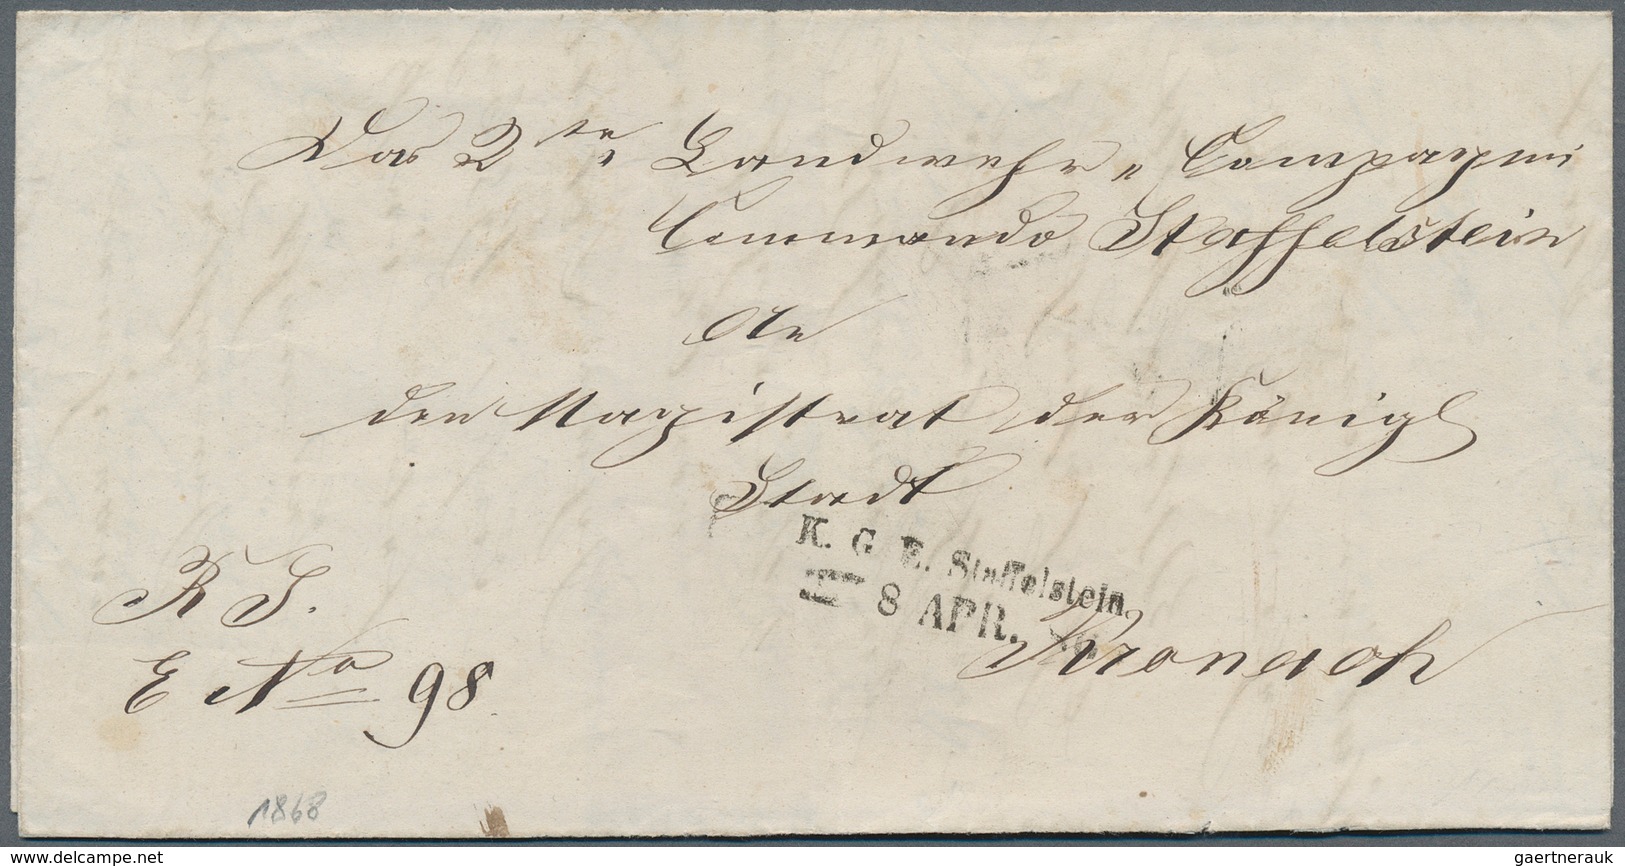 Das 2te Landwehr-Compagni
Commando Staffelstein
An
den Magistrat der Königl
Stadt
K. G E. Staffelstein.
8 APR.
Kronach
R S.
E No 98
1868
www.delcampe.com
gaertnerauk